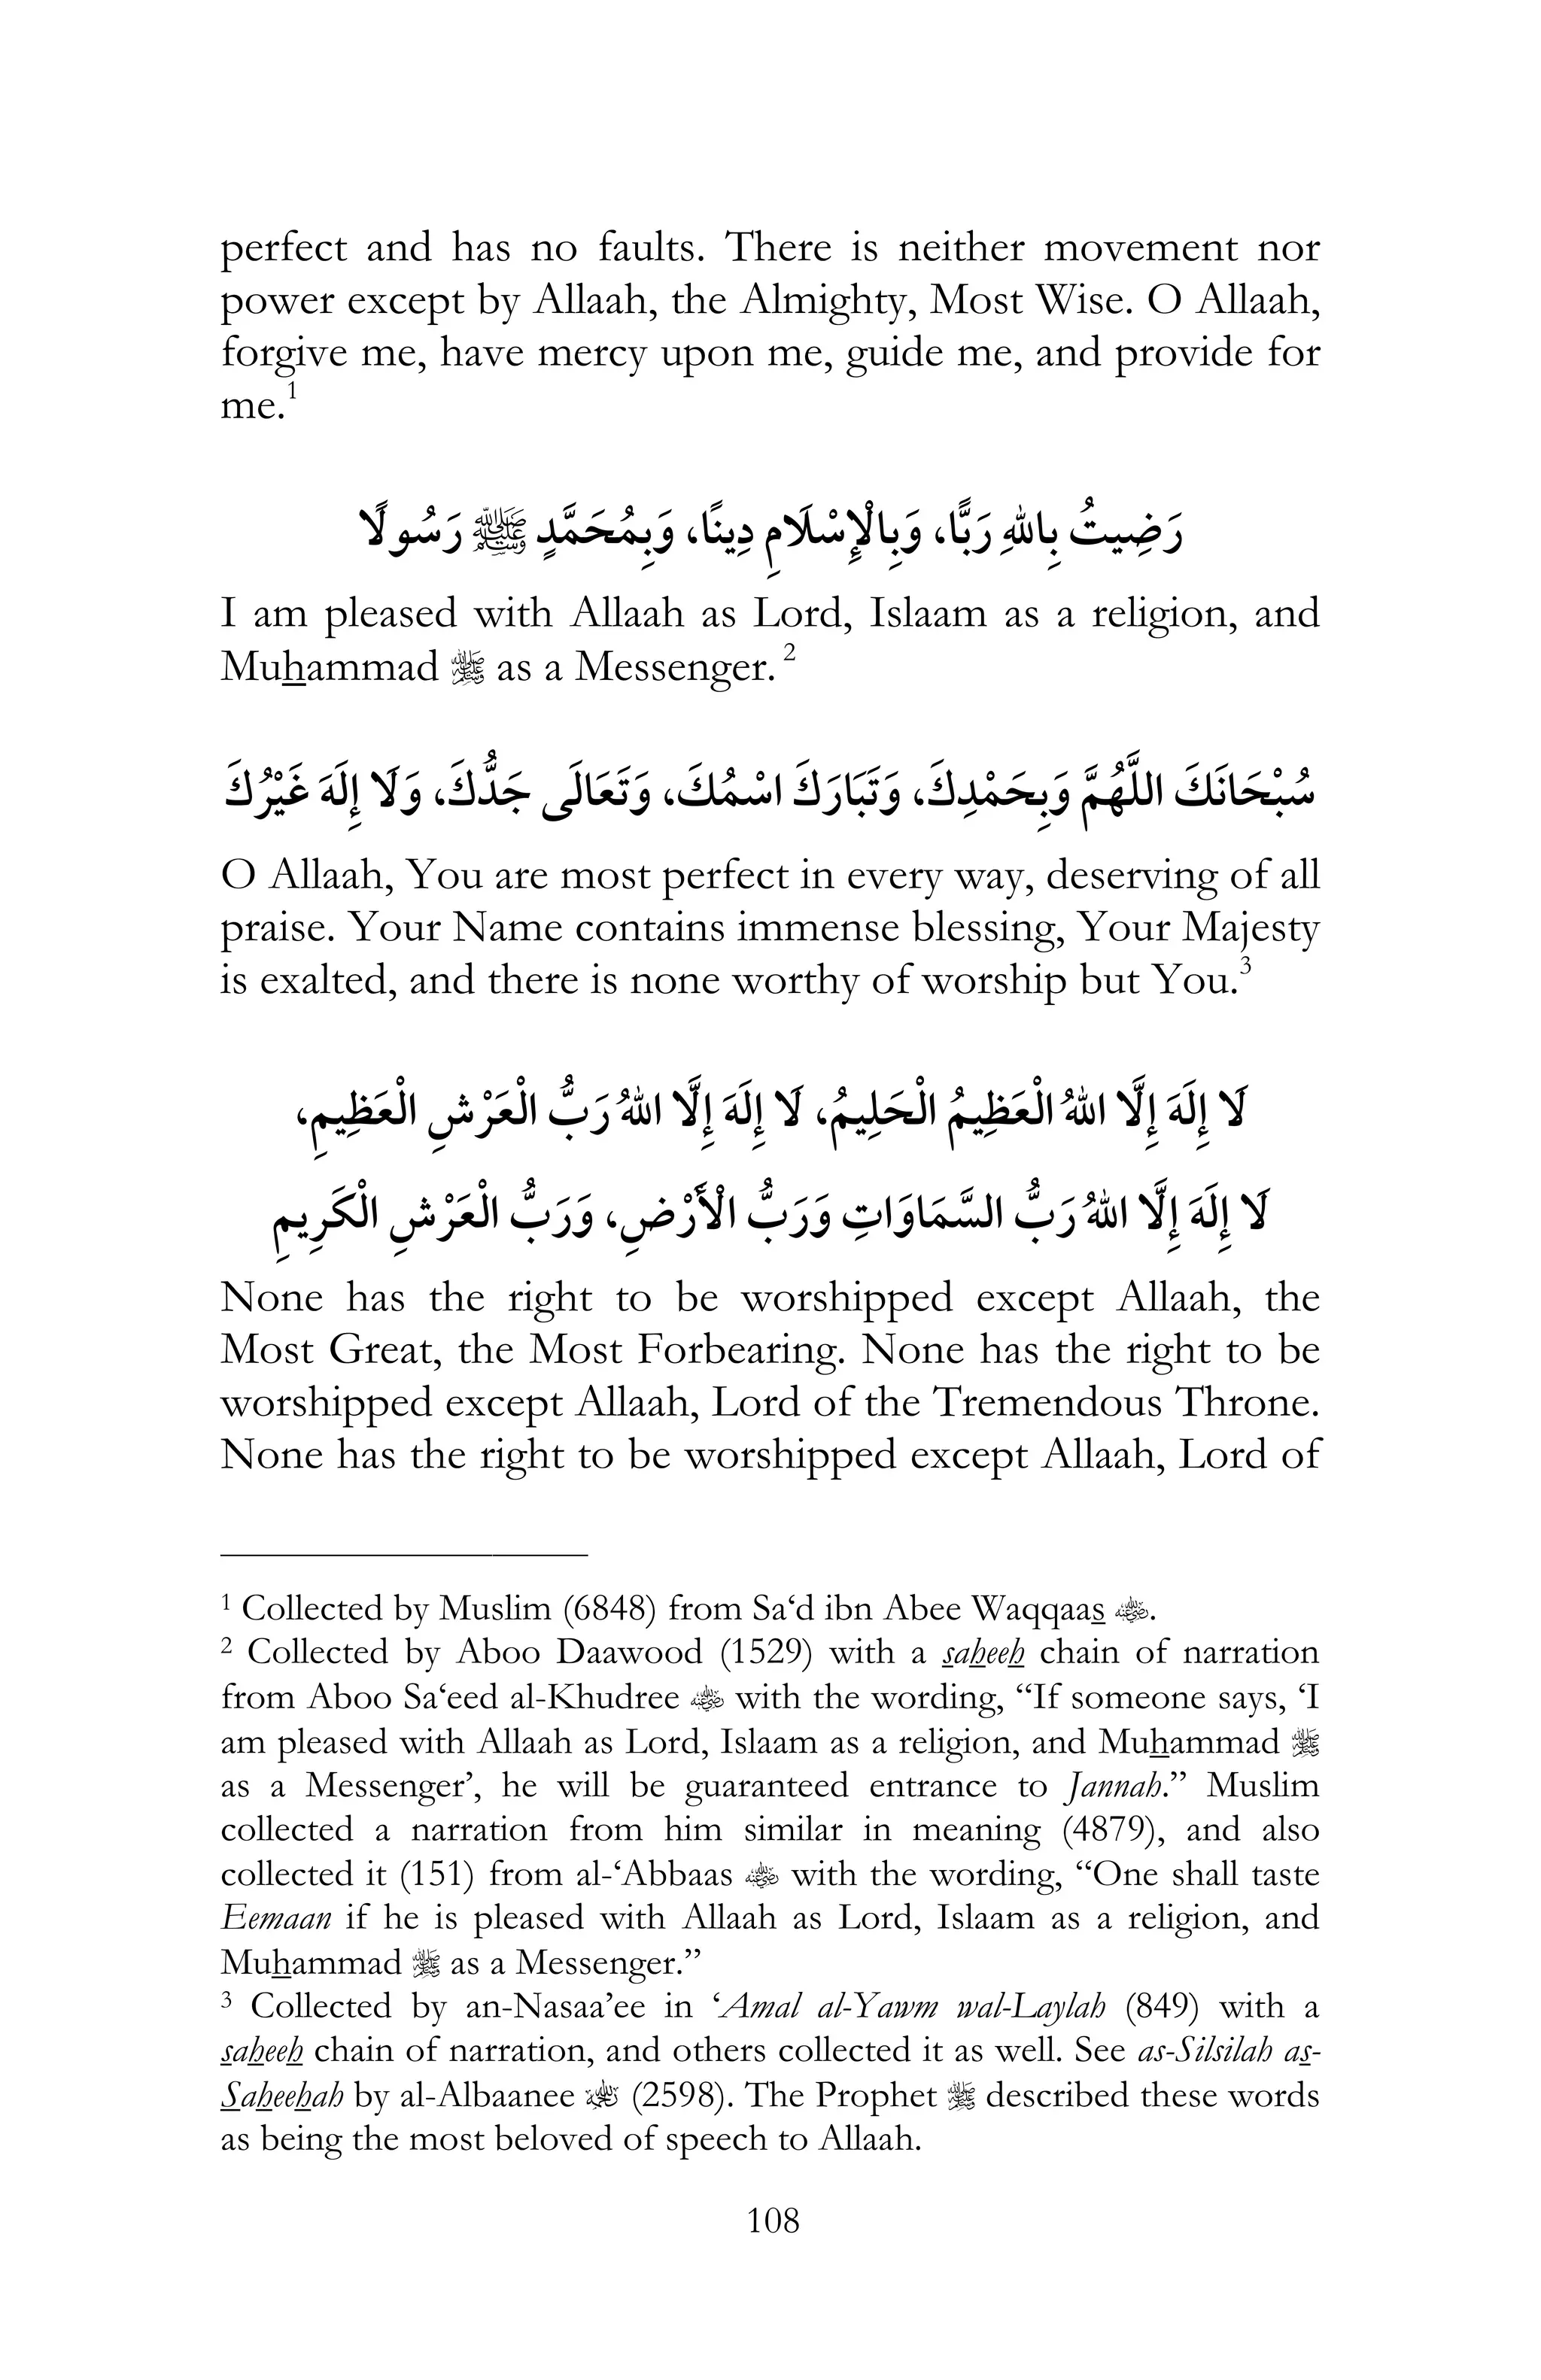 perfect and has no faults. There is neither movement nor
power except by Allaah, the Almighty, Most Wise. O Allaah,
forgive me, have mercy upon me, guide me, and provide for
me.1
رَضِيتُ بِاللهِ رَبًّا، وَبِالْإِسْلَامِ دِينًا، وَبِمُحَمَّدٍ ﷺ رَسُولًا
I am pleased with Allaah as Lord, Islaam as a religion, and
Muhammad ﷺ as a Messenger. 2
سُبْحَانَكَ اللَّهُمَّ وَبِحَمْدِكَ، وَتَبَارَكَ اسْمُكَ، وَتَعَالَى جَدُّكَ، وَلَا إِلَهَ غَيْرُكَ
O Allaah, You are most perfect in every way, deserving of all
praise. Your Name contains immense blessing, Your Majesty
is exalted, and there is none worthy of worship but You.3
لَا إِلَهَ إِلَّا اللهُ الْعَظِيمُ الْحَلِيمُ، لَا إِلَهَ إِلَّا اللهُ رَبُّ الْعَرْشِ الْعَظِيمِ،
لَا إِلَهَ إِلَّا اللهُ رَبُّ السَّمَاوَاتِ وَرَبُّ الْأَرْضِ، وَرَبُّ الْعَرْشِ الْكَرِيمِ
None has the right to be worshipped except Allaah, the
Most Great, the Most Forbearing. None has the right to be
worshipped except Allaah, Lord of the Tremendous Throne.
None has the right to be worshipped except Allaah, Lord of
1 Collected by Muslim (6848) from Sa‘d ibn Abee Waqqaas رضي الله عنه.
2 Collected by Aboo Daawood (1529) with a saheeh chain of narration
from Aboo Sa‘eed al-Khudree رضي الله عنه with the wording, “If someone says, ‘I
am pleased with Allaah as Lord, Islaam as a religion, and Muhammad ﷺ
as a Messenger’, he will be guaranteed entrance to Jannah.” Muslim
collected a narration from him similar in meaning (4879), and also
collected it (151) from al-‘Abbaas رضي الله عنه with the wording, “One shall taste
Eemaan if he is pleased with Allaah as Lord, Islaam as a religion, and
Muhammad ﷺ as a Messenger.”
3 Collected by an-Nasaa’ee in ‘Amal al-Yawm wal-Laylah (849) with a
saheeh chain of narration, and others collected it as well. See as-Silsilah as-
Saheehah by al-Albaanee رحمه الله (2598). The Prophet ﷺ described these words
as being the most beloved of speech to Allaah.
108